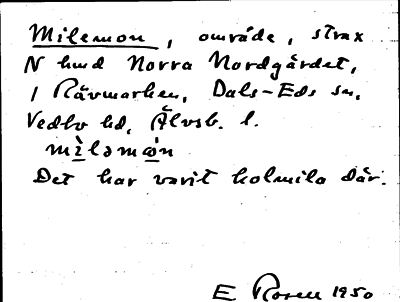 Milemon, område, strax
N hmd Norra Nordgärdet,
i Rävmarken, Dals-Eds sn,
Vedbo hd, Älvsb. l.
mìləmón
Det har varit kolmila där.
E Rosen 1950